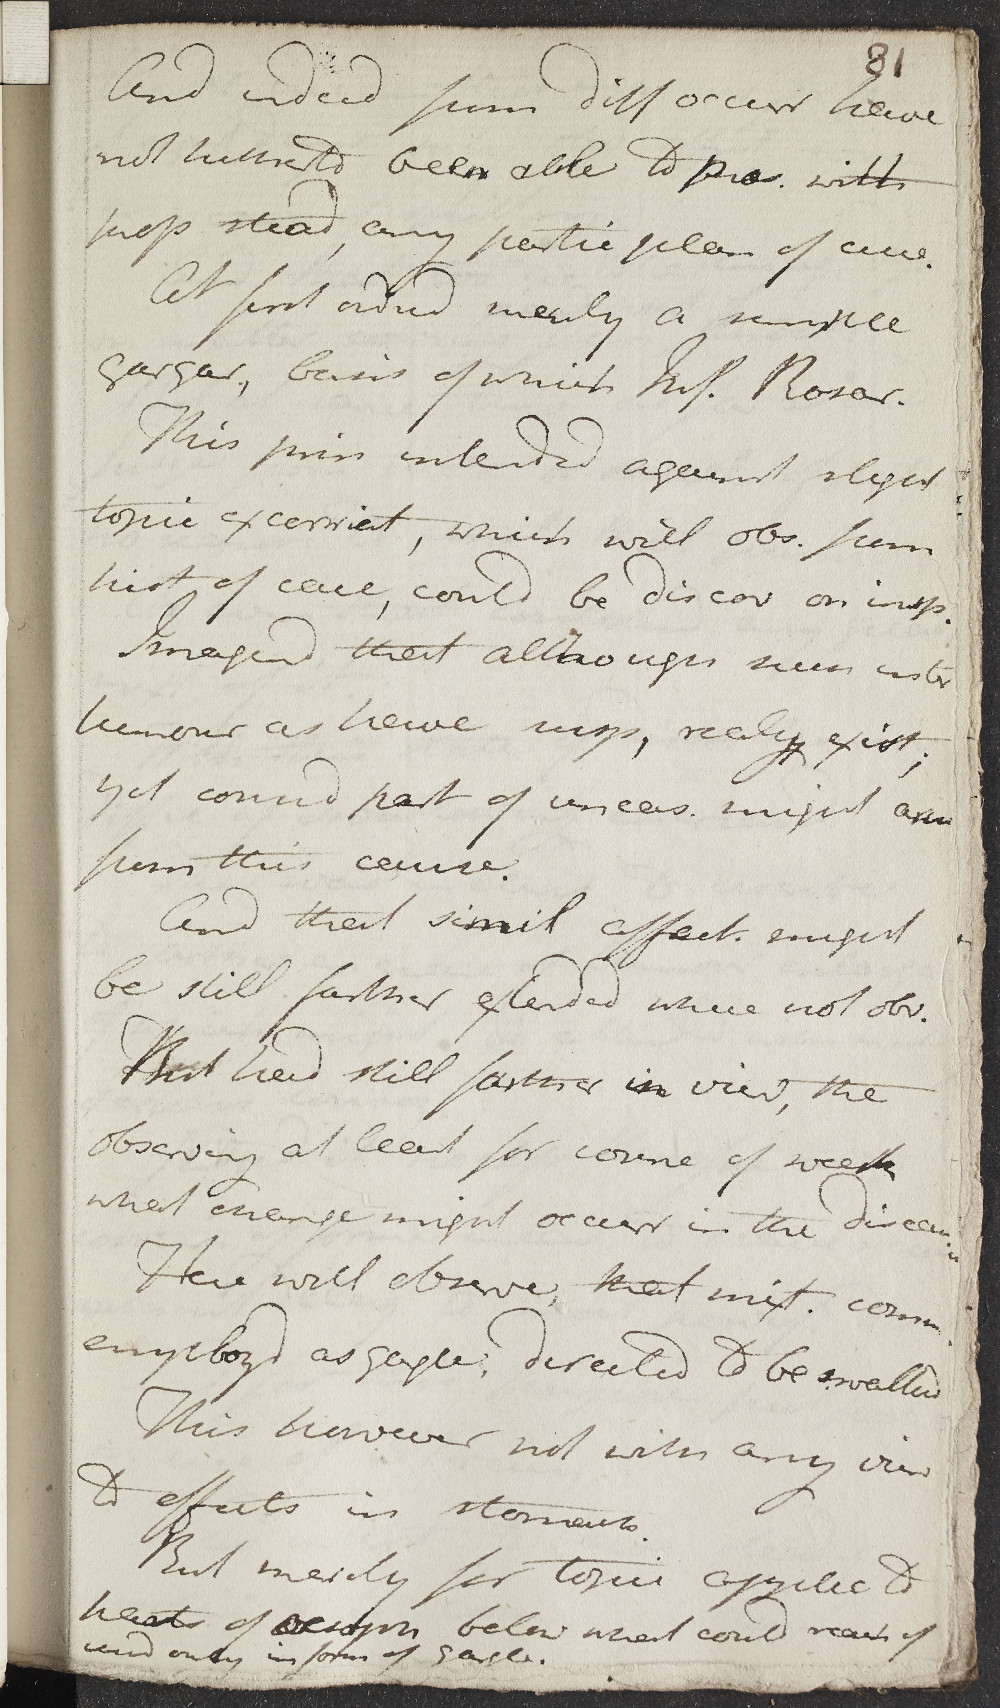 81
And indeed from diff occurr have
not hitherto been able to pro. with
prop stead, any partic plan of cure.
At first ordred merely a simple
gargar., basis of which Inf. Rosar.
This prin intended against slight
topic excoriat, which will obs. from
hist of case, could be discov on insp.
Imagind that although such inter
humour as have supp, realy exist,
yet consid part of uneas. might arise
from this cause.
And that simil affect. might
be still farther extended where not obv.
But had still farther in view, the
observing at least for course of week
what change might occurr in the disease
Here will observe, that mixt. comm.
employd as gargle, directed to be swallowd
This however not with any view
to effects in stomach.
But merely for topic applic to
parts of oesoph below what could reach if
usd only in form of gargle.